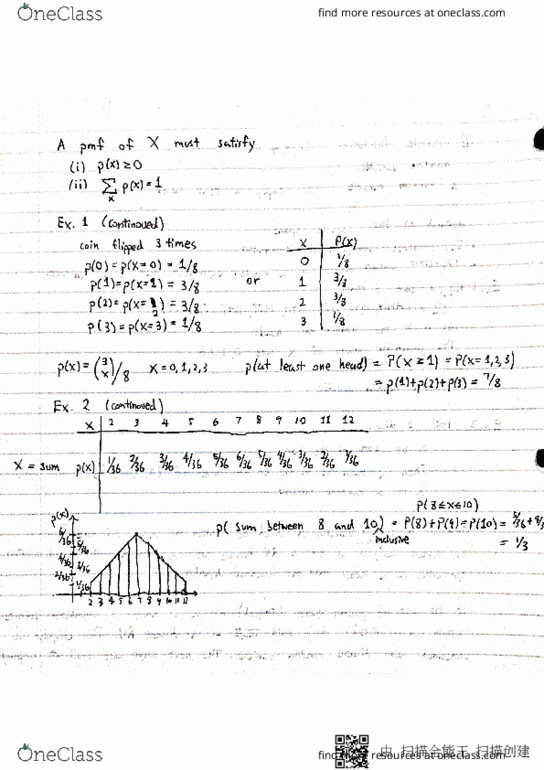 OneClass
find more resources at oneclass.com
A pmf of X must satisfy
(i) p(x) ≥ 0
(ii) Σ p(x) = 1
x
Ex. 1 (continoued)
coin flipped 3 times
p(0) = p(X=0) = 1/8
p(1) = p(X=1) = 3/8
p(2) = p(X=2) = 3/8
p(3) = p(X=3) = 1/8
or
X P(x)
0 1/8
1 3/8
2 3/8
3 1/8
p(x) = (3 x)/8 X = 0,1,2,3
p(at least one head) = P(X ≥ 1) = P(X = 1,2,3)
= p(1)+p(2)+p(3) = 7/8
Ex. 2 (continoued)
X 2 3 4 5 6 7 8 9 10 11 12
X = sum p(x) 1/36 2/36 3/36 4/36 5/36 6/36 5/36 4/36 3/36 2/36 1/36
p(x)
6/36
5/36
4/36
3/36
2/36
1/36
2 3 4 5 6 7 8 9 10 11 12
P(8 ≤ X ≤ 10)
p( sum between 8 and 10) = P(8)+P(9)=P(10) = 5/36 + 4/3
inclusive
= 1/3
OneClass
find more resources at oneclass.com
扫描全能王 扫描创建